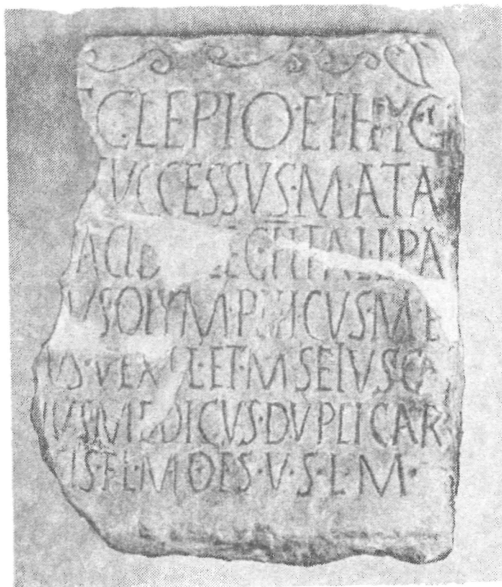 CLEPIO·ET·HYG
VCCESSVS·M·ATA
ACID ITALI·PA
VS OLYMP ICVS·M·E
VS·VEX L·ET·M SEIVS CA
IVS MEDICVS·DVPLICAR
IS·FL·MODES·V·S·L·M·